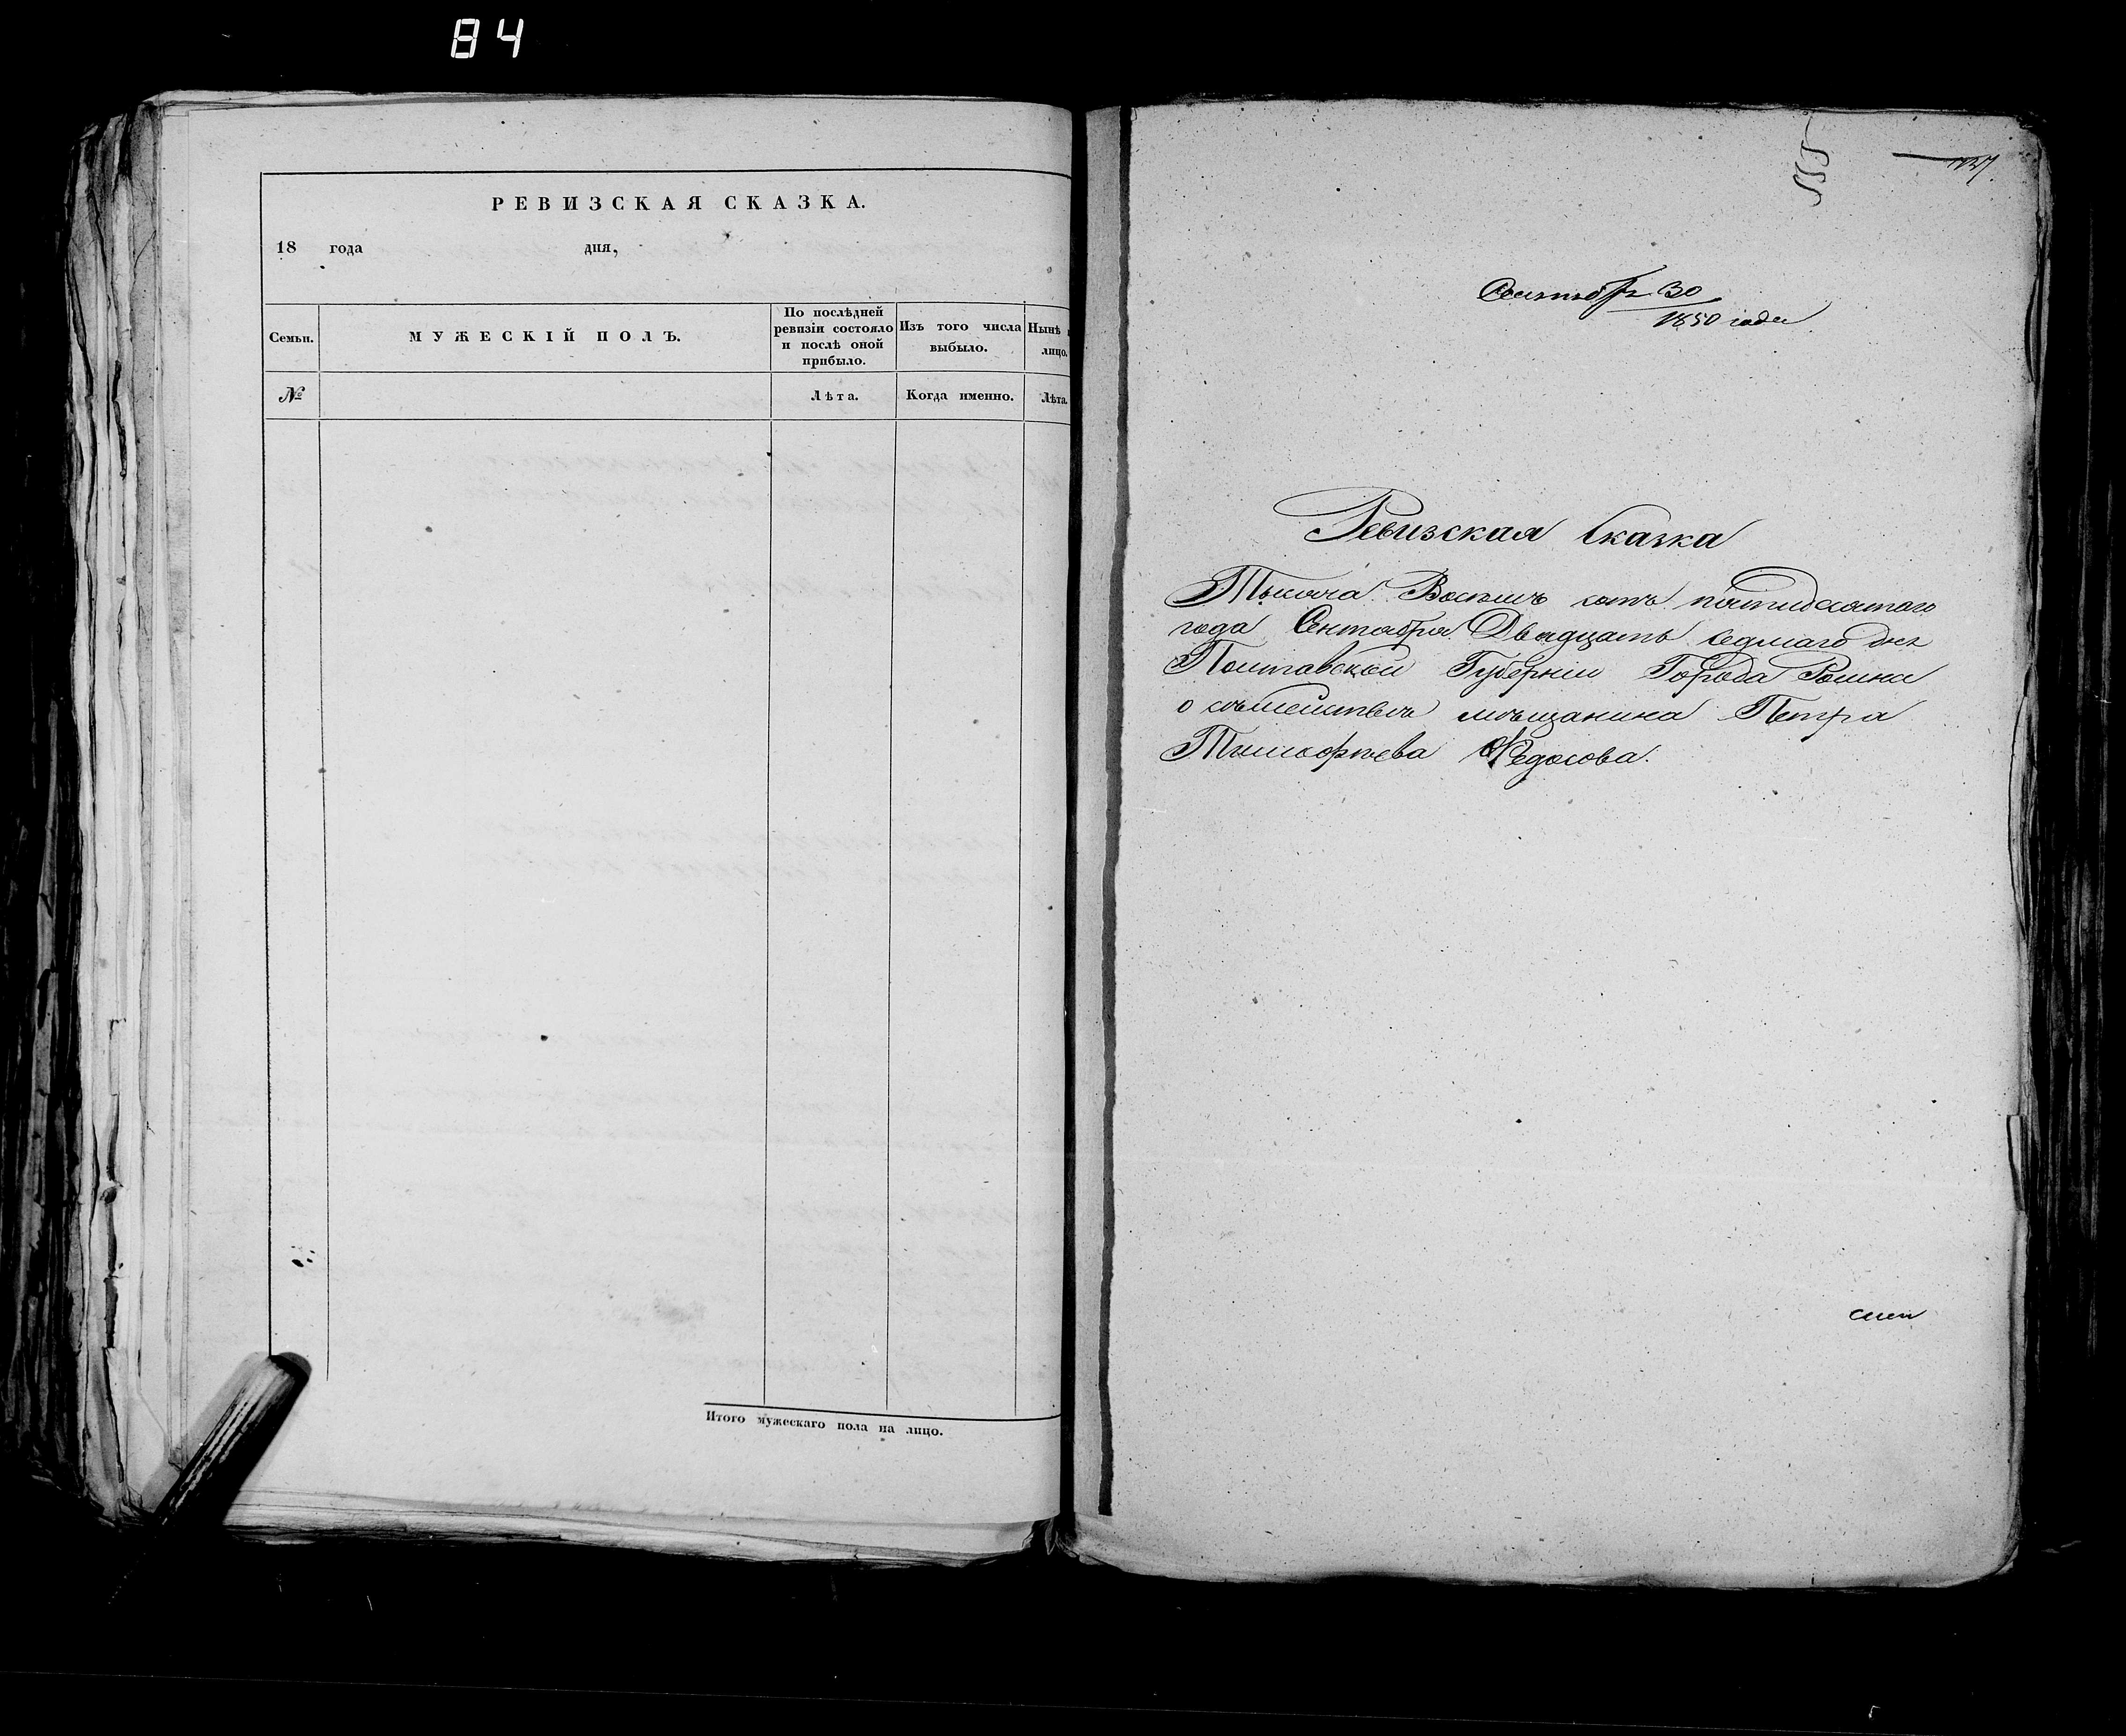 84
РЕВИЗСКАЯ СКАЗКА.
18 года дня,
Семьи.
МУЖЕСКІЙ ПОЛЪ.
По послѣдней
ревизіи состояло
и послѣ оной
прибыло.
Изъ того числа
выбыло.
Нынѣ
лицо.
№
Лѣта.
Когда именно.
Лѣта.
Итого мужескаго пола на лицо.
30
1850 года
Ревизская Сказка
Тысяча Восемь сотъ пятидесятаго
года Сентября Двадцать седмаго дня
Полтавской Губерніи Города Ромна
о съмействѣ мѣщанина Петра
Тимофѣева Федосова.